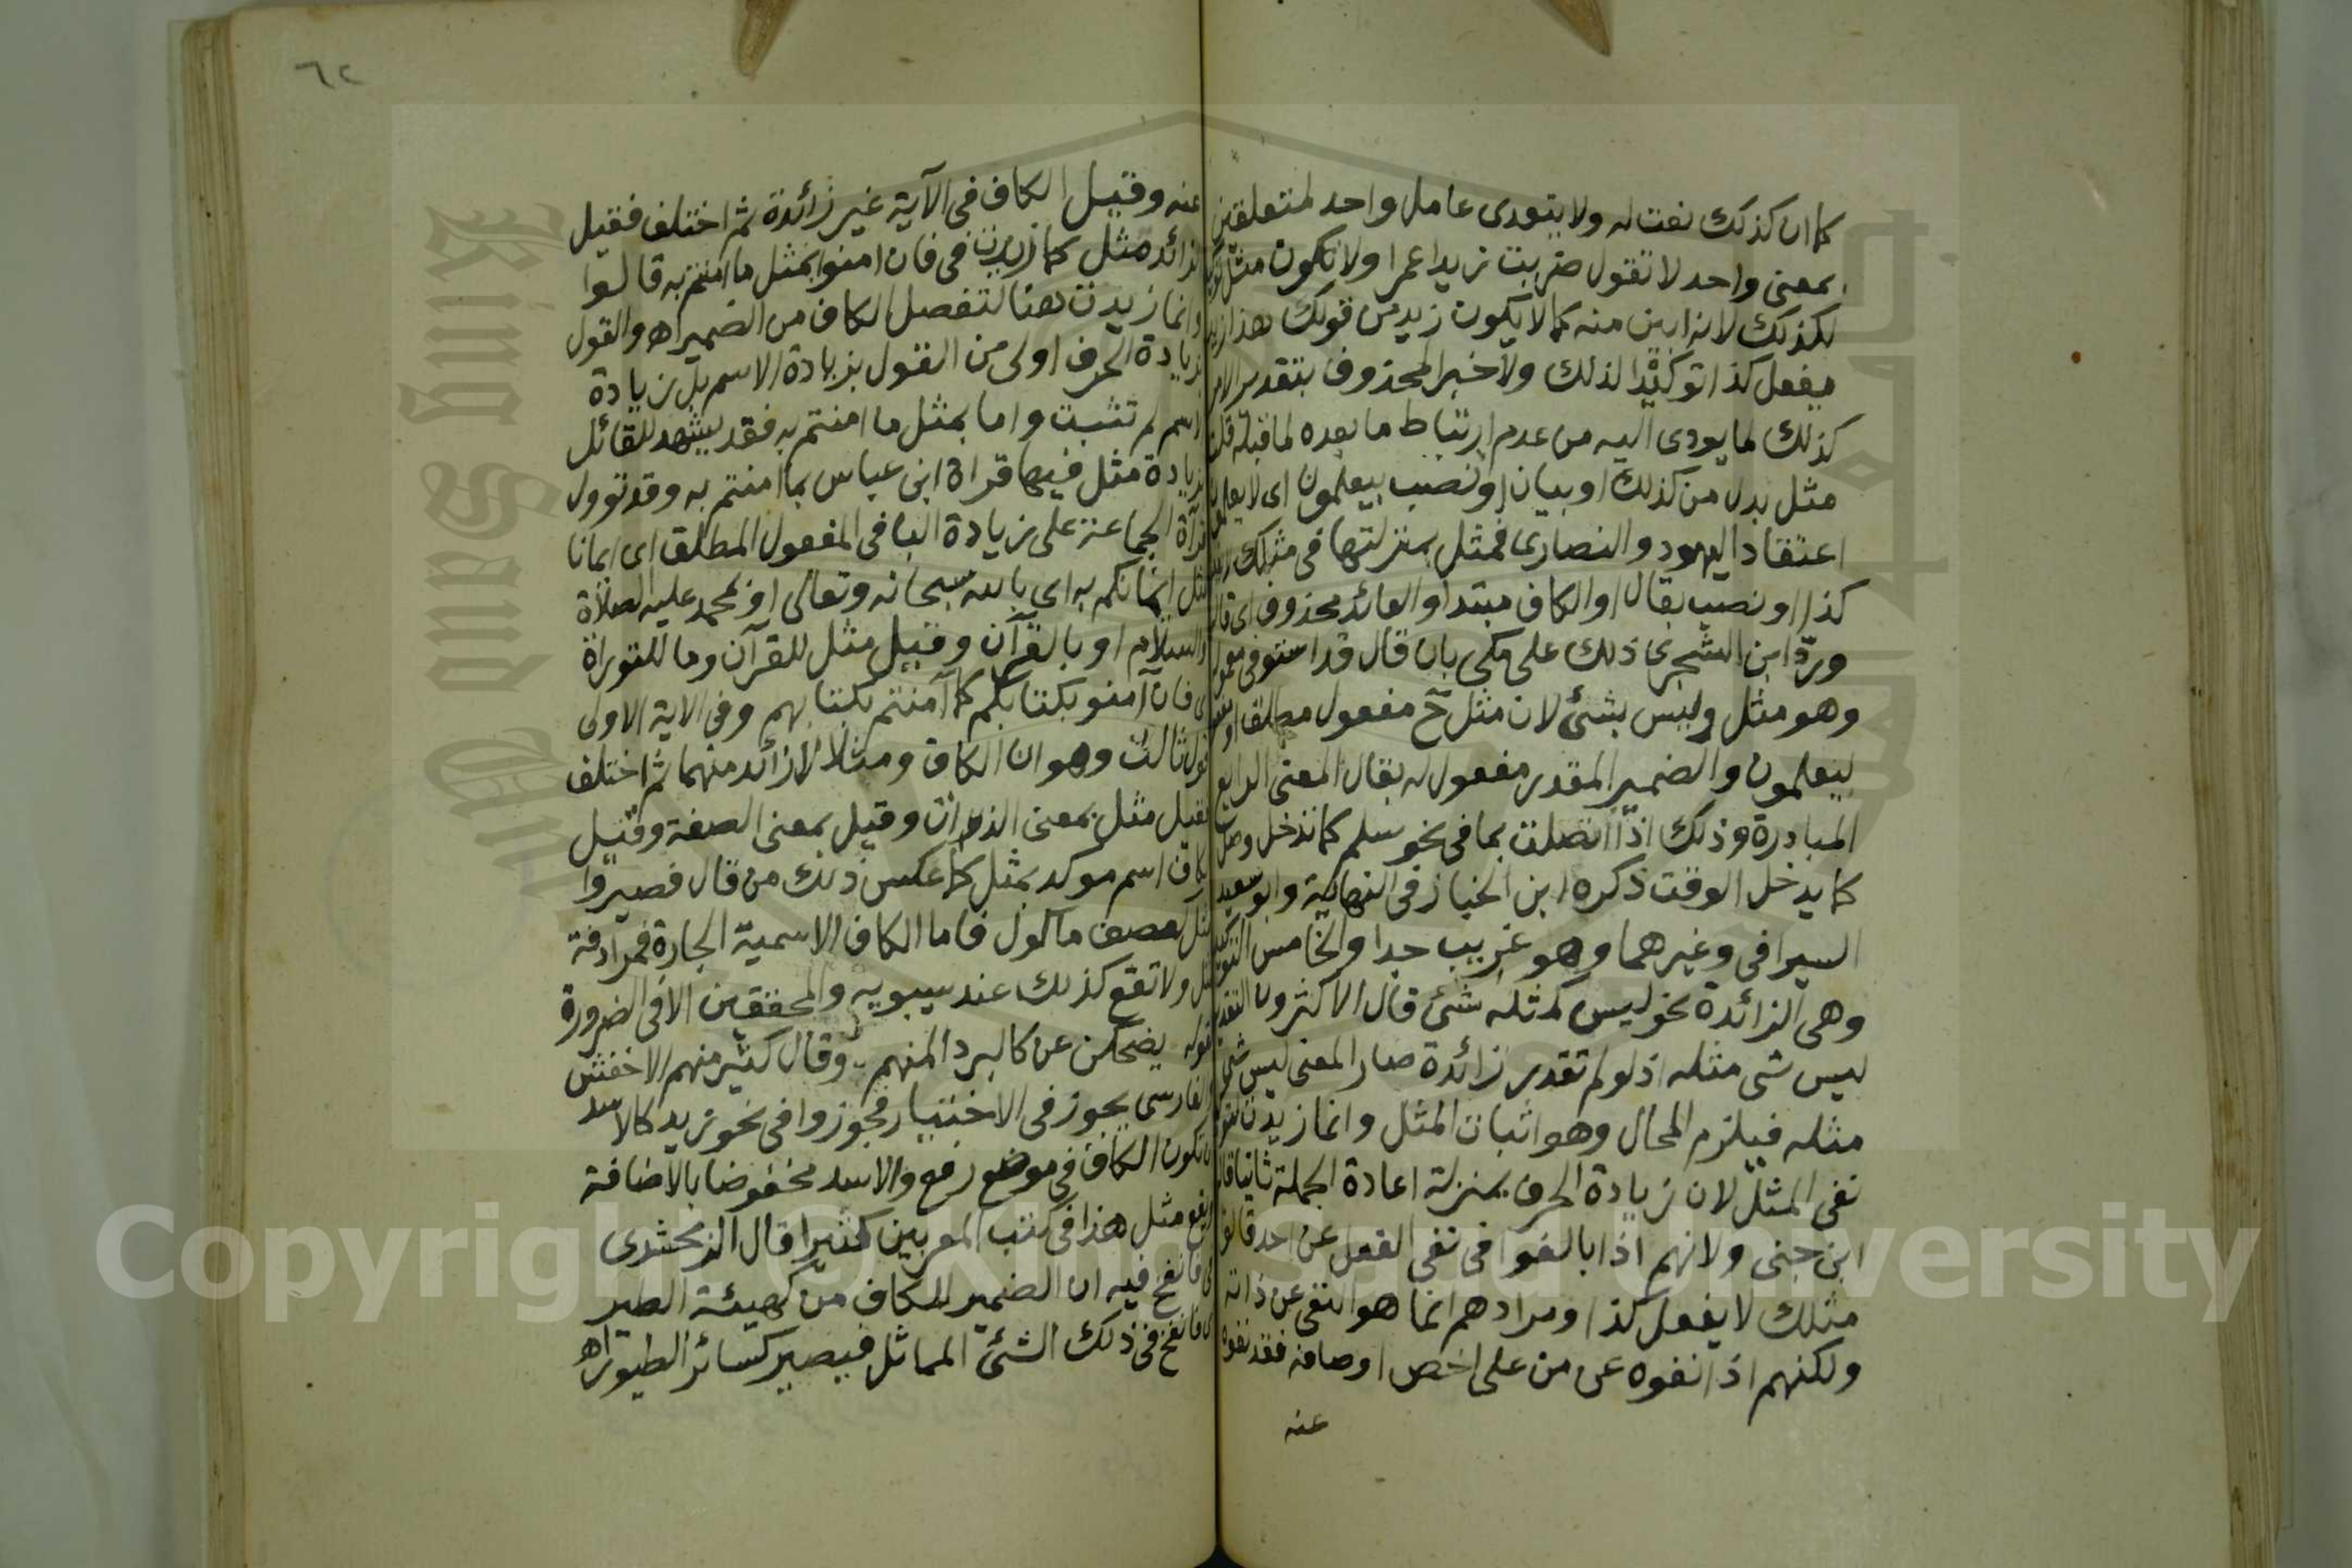 كما ان كذلك نعت له ولا يتعدى عامل واحد لمتعلقين
بمعنى واحد لا تقول ضربت زيدا عمرا ولا تكون مثل
لكذلك لانه ابين منه كما لا يكون زيد من قولك هذا زيد
يفعل كذا توكيدا لذلك ولا خبر المحذوف بتقدير الامر
كذلك لما يودى اليه من عدم ارتباط ما بعده لما قبله قلت
مثل بدل من كذلك او بيان او نصب بيعلمون اى لا يعلمون
اعتقاد اليهود والنصارى فمثل بمنزلتها فى مثلك
كذا او نصب بقال او الكاف مبتدا والعائد محذوف اى قاله
وردّ ابن الشجرى ذلك على مكى بان قال قد استوفى
وهو مثل وليس بشئ لان مثل ح مفعول مطلق او
ليعلمون والضمير المقدر مفعول له بقال المعنى الرابع
المبادرة وذلك اذا اتصلت بما فى نحو سلم كما تدخل وصل
كما يدخل الوقت ذكره ابن الخباز فى النهاية وابو سعيد
السيرافى وغيرهما وهو غريب جدا والخامس التوكيد
وهى الزائدة نحو ليس كمثله شئ قال الاكثرون التقدير
ليس شى مثله اذ لو لم تقدر زائدة صار المعنى ليس شى
مثله فيلزم المحال وهو اثبات المثل وانما زيدت
نفى المثل لان زيادة الحرف بمنزلة اعادة الجملة ثانيا قاله
ابن جنى ولانهم اذا بالغوا فى نفى الفعل عن احد قالوا
مثلك لا يفعل كذا ومرادهم انما هو النفى عن ذاته
ولكنهم اذا نفوه عن من على اخص اوصافه فقد نفوه
عنه
٦٢
عنه وقيل الكاف فى الآية غير زائدة ثم اختلف فقيل
الزائد مثل كما زيدت فى فان امنوا بمثل ما امنتم به قالوا
وانما زيدت هنا لتفصل الكاف من الضمير اه والقول
بزيادة الحرف اولى من القول بزيادة الاسم بل زيادة
الاسم لم تثبت واما بمثل ما امنتم به فقد يشهد للقائل
بزيادة مثل فيها قراة ابن عباس بما امنتم به وقد تؤول
قرآة الجماعة على زيادة البا فى المفعول المطلق اى ايمانا
مثل ايمانكم به اى بالله سبحانه وتعالى او لمحمد عليه الصلاة
والسلام او بالقرآن وقيل مثل للقرآن وما للتوراة
اى فان آمنو بكتابكم كما آمنتم بكتابهم وفى الاية الاولى
قول ثالث وهو ان الكاف ومثلا لا زائد منهما ثم اختلف
فقيل مثل بمعنى الذات وقيل بمعنى الصفة وقيل
الكاف اسم موكد بمثل كما عكس ذلك من قال فصيروا
مثل كعصف ماكول فاما الكاف الاسمية الجارة فمرادفة
لمثل ولا تقع كذلك عند سيبويه والمحققين الا فى الضرورة
كقوله يضحكن عن كالبرد المنهم وقال كثير منهم الاخفش
والفارسى يجوز فى الاختيار فجوزوا فى نحو زيد كالاسد
ان تكون الكاف فى موضع رفع والاسد مخفوضا بالاضافة
ويقع مثل هذا فى كتب المعربين كثيرا قال الزمخشرى
فى فانفخ فيه ان الضمير للكاف من كهيئة الطير
اى فانفخ فى ذلك الشئ المماثل فيصير كسائر الطيور اه